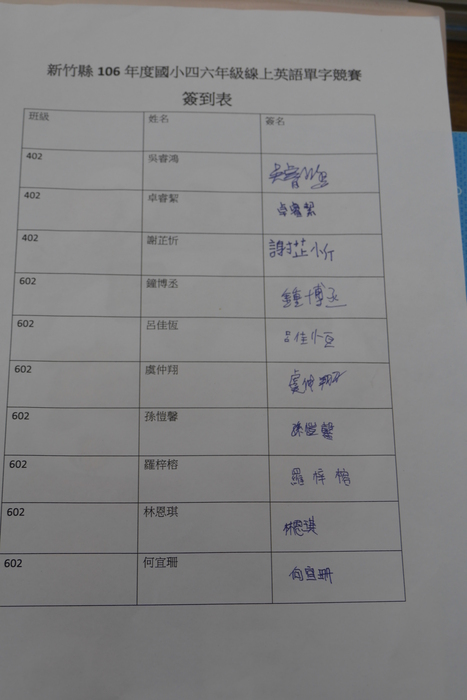 新竹縣 106 年度國小四六年級線上英語單字競賽
簽到表
班級 姓名 簽名
402 吳睿鴻 吳睿鴻
402 卓睿絜 卓睿絜
402 謝芷忻 謝芷忻
602 鐘博丞 鐘博丞
602 呂佳恆 呂佳恆
602 虞仲翔 虞仲翔
602 孫愷馨 孫愷馨
602 羅梓榕 羅梓榕
602 林恩琪 林恩琪
602 何宜珊 何宜珊